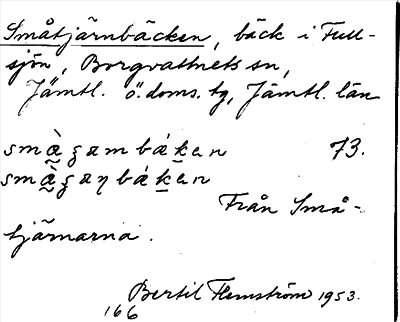 Småtjärnbäcken, bäck i Full-
sjön, Borgvattnets sn,
Jämtl. ö. doms. tg, Jämtl. län
73.
Från Små-
tjärnarna.
Bertil Flemström 1953.
166